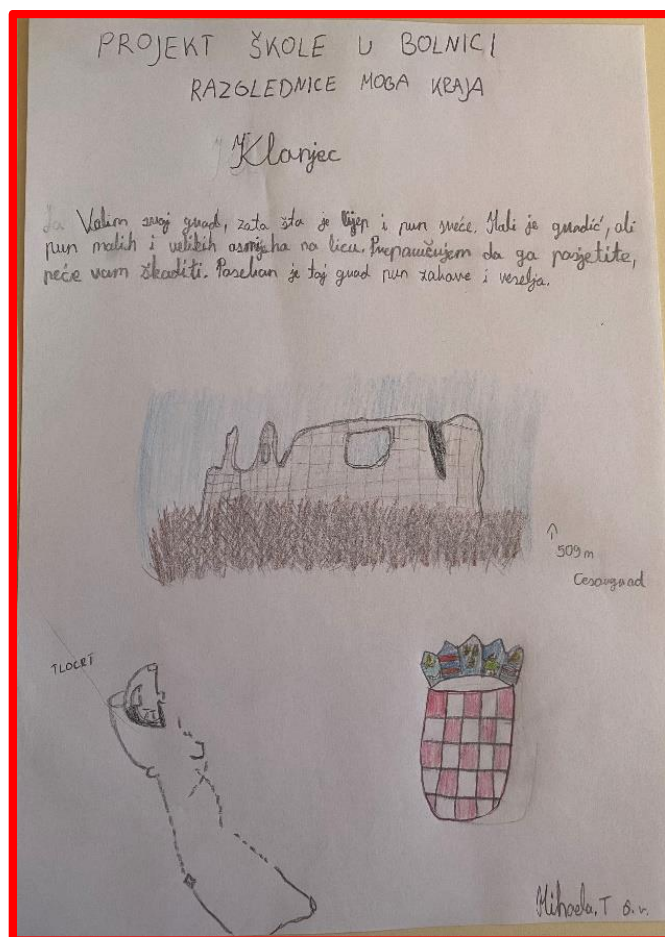 PROJEKT ŠKOLE U BOLNICI
RAZGLEDNICE MOGA KRAJA
Klanjec
Volim svoj grad, zato što je lijep i pun sreće. Mali je gradić, ali
pun malih i velikih osmijeha na licu. Preporučujem da ga posjetite,
neće vam škoditi. Poseban je taj grad pun zabave i veselja.
↑
509 m
Cesargrad
TLOCRT
Mihaela, T 8. r.